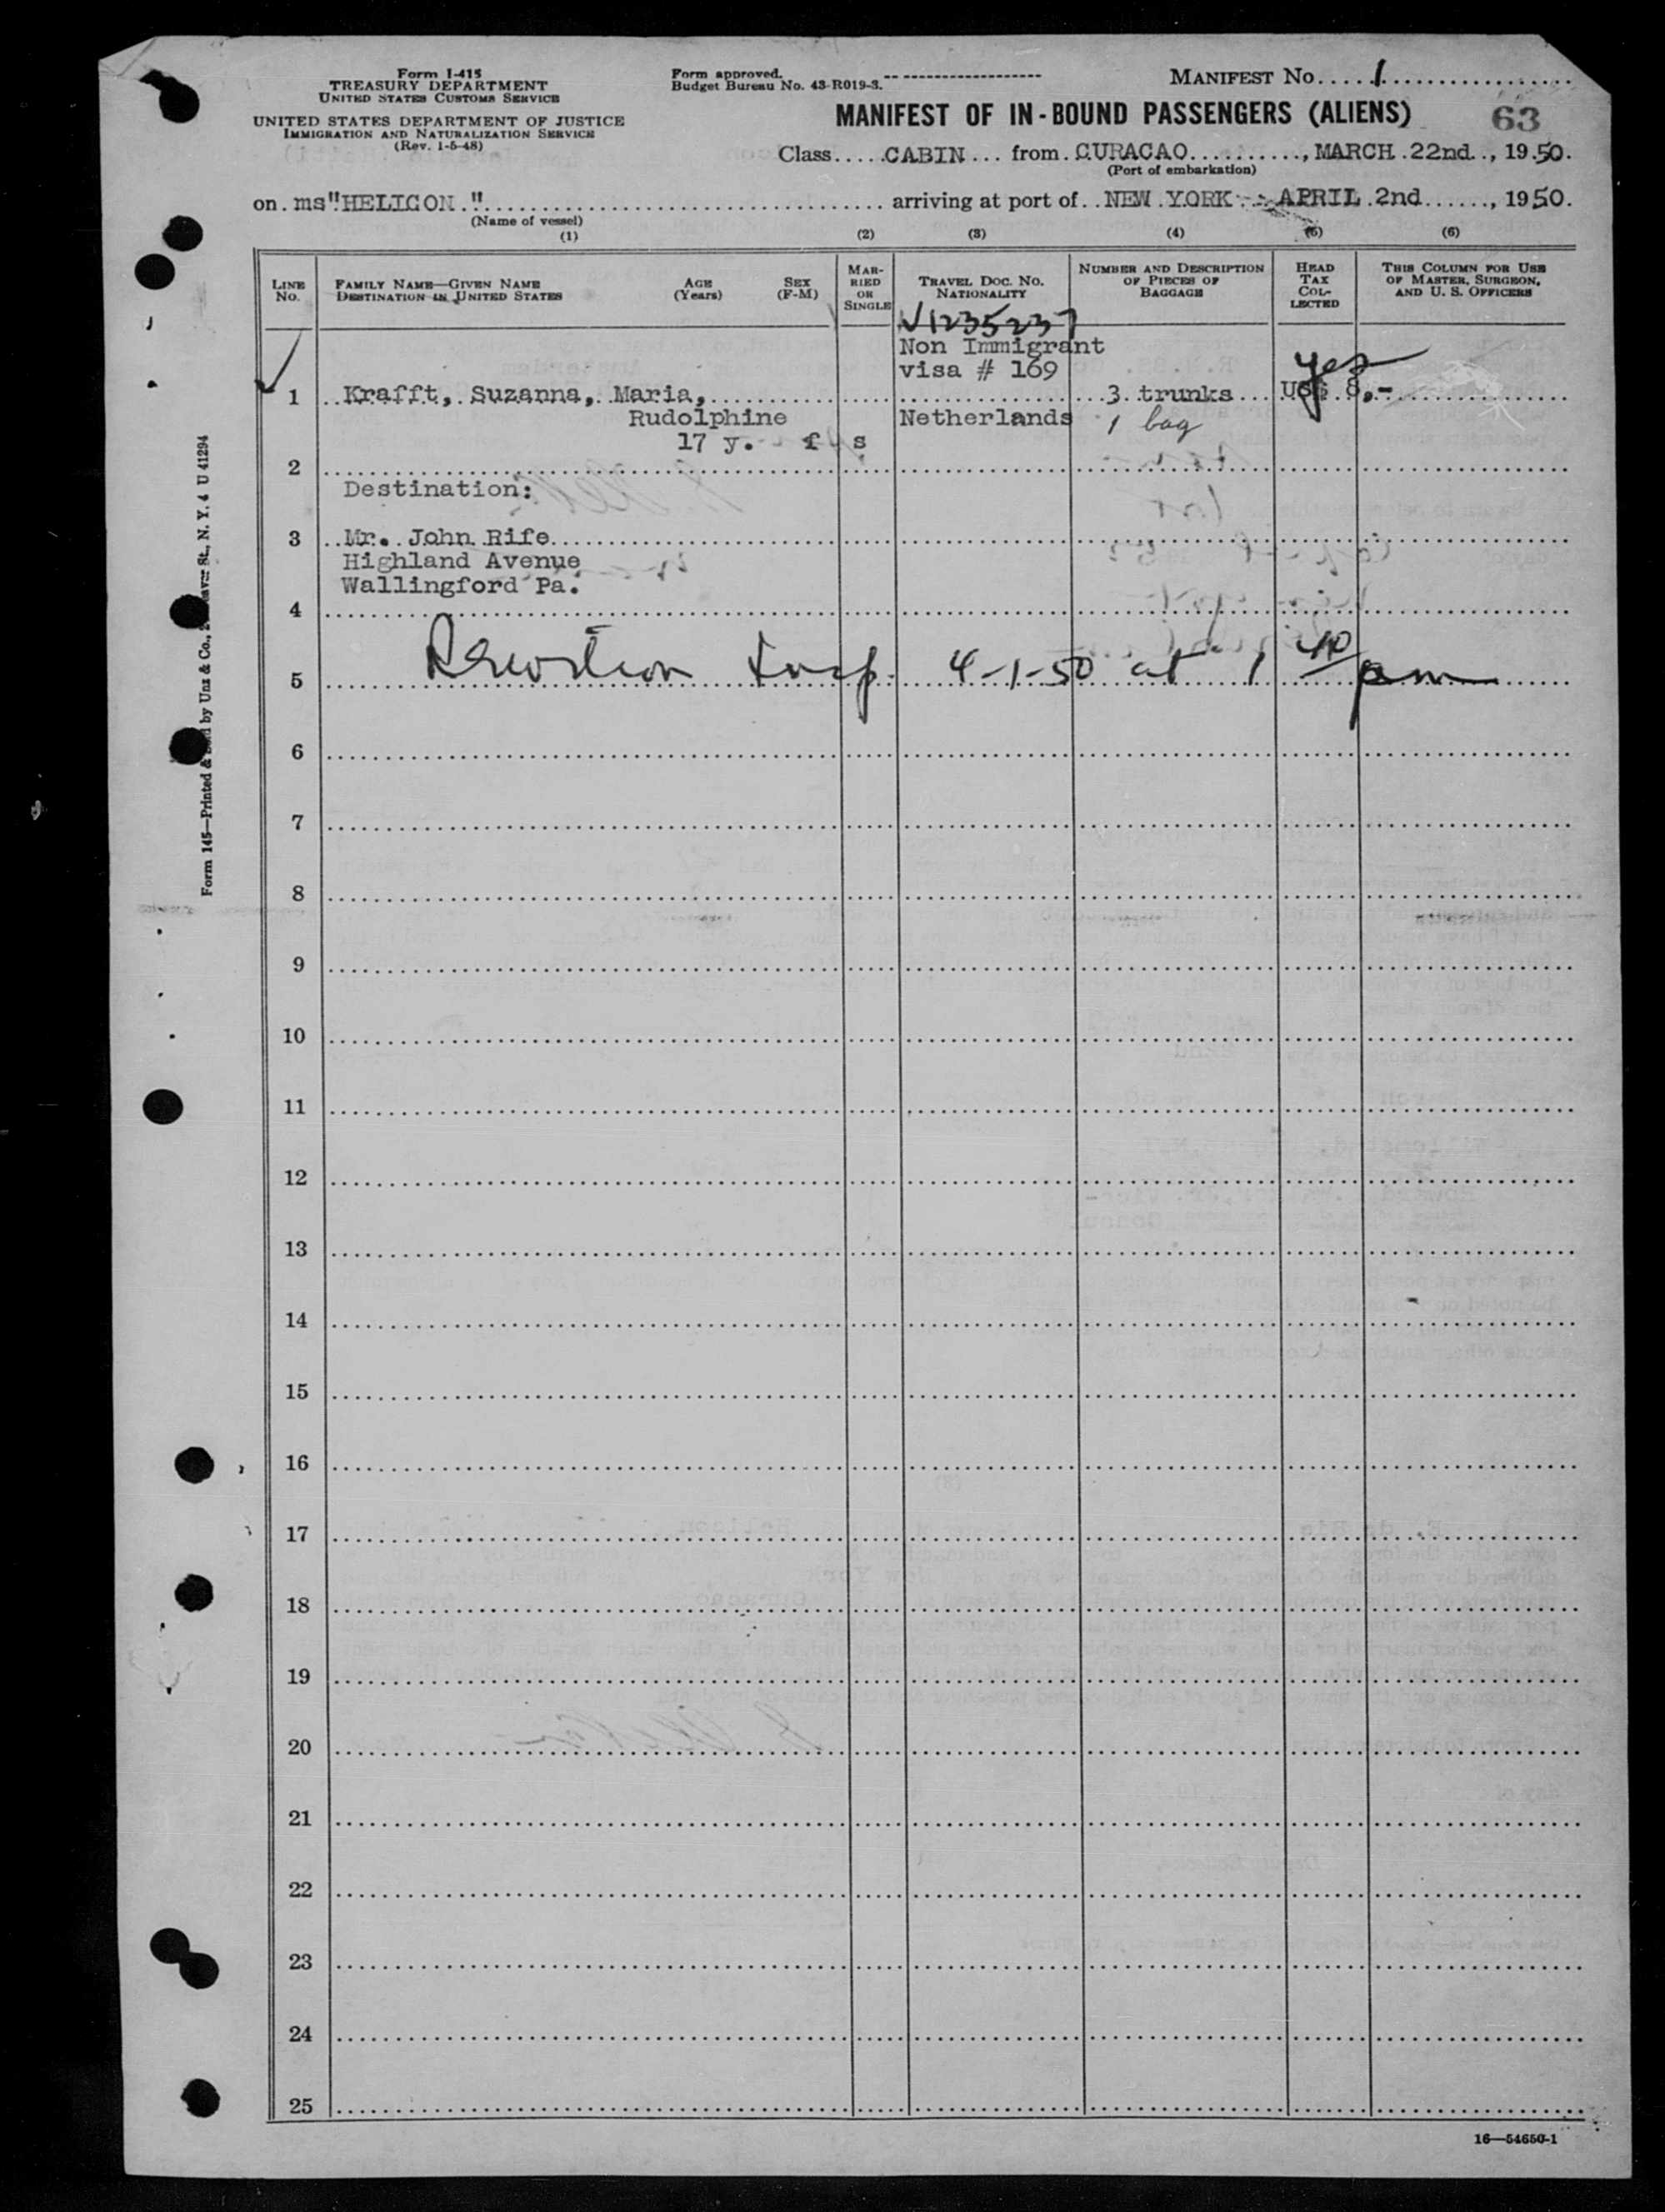 Form I-415
TREASURY DEPARTMENT
UNITED STATES CUSTOMS SERVICE
UNITED STATES DEPARTMENT OF JUSTICE
IMMIGRATION AND NATURALIZATION SERVICE
(Rev. 1-5-48)
Form approved.
Budget Bureau No. 43-R019-3.
MANIFEST NO. 1
MANIFEST OF IN-BOUND PASSENGERS (ALIENS)
63
Class CABIN from CURACAO, MARCH 22nd, 1950.
(Port of embarkation)
on ms "HELICON" arriving at port of NEW YORK APRIL 2nd, 1950.
(Name of vessel)
(1) (2) (3) (4) (5) (6)
LINE NO.
FAMILY NAME—GIVEN NAME
DESTINATION IN UNITED STATES
AGE (Years)
SEX (F-M)
MARRIED OR SINGLE
TRAVEL DOC. NO.
NATIONALITY
NUMBER AND DESCRIPTION OF PIECES OF BAGGAGE
HEAD TAX COLLECTED
THIS COLUMN FOR USE OF MASTER, SURGEON, AND U. S. OFFICERS
V1235237
Non Immigrant
visa # 169
yes
1 Krafft, Suzanna, Maria, 3 trunks US$ 8,-
Rudolphine Netherlands 1 bag
17 y. f s
2
Destination:
3 Mr. John Rife
Highland Avenue
Wallingford Pa.
4
5 Insp. 4-1-50 at 1 40 pm
6
7
8
9
10
11
12
13
14
15
16
17
18
19
20
21
22
23
24
25
16—54650-1
Form 145—Printed & Sold by Unz & Co., Beaver St., N. Y. 4 U 41294